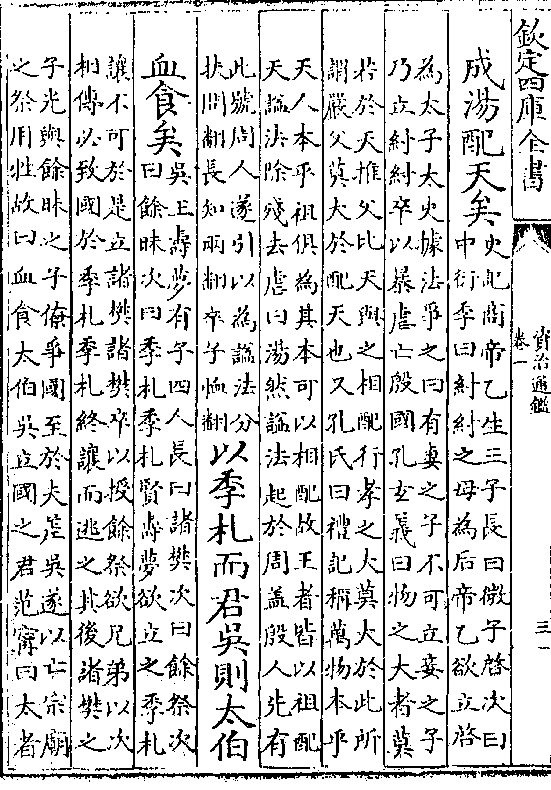 欽定四庫全書
資治通鑑
卷一
三
成湯配天矣
史記商帝乙生三子長曰微子啓次曰
中衍季曰紂紂之母為后帝乙欲立啓
為太子太史據法爭之曰有妻之子不可立妾之子
乃立紂紂卒以暴虐亡殷國孔玄義曰物之大者莫
若於天推父比天與之相配行孝之大莫大於此所
謂嚴父莫大於配天也又孔氏曰禮記稱萬物本乎
天人本乎祖俱為其本可以相配故王者皆以祖配
天諡法除殘去虐曰湯然諡法起於周盖殷人先有
此號周人遂引以為諡法分
扶問翻長知兩翻卒子恤翻
以季札而君吳則太伯
血食矣
吳王壽夢有子四人長曰諸樊次曰餘祭次
曰餘昧次曰季札季札賢壽夢欲立之季札
讓不可於是立諸樊諸樊卒以授餘祭欲兄弟以次
相傳必致國於季札季札終讓而逃之其後諸樊之
子光與餘昧之子僚爭國至於夫差吳遂以亡宗廟
之祭用牲故曰血食太伯吳立國之君范甯曰太者